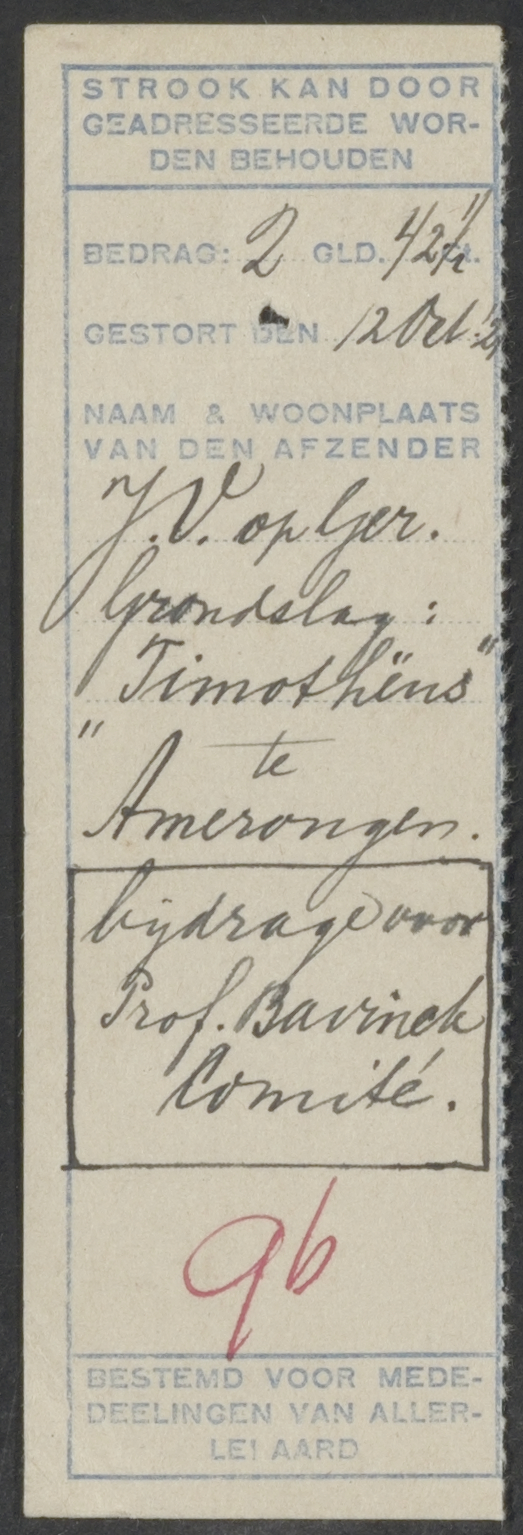 STROOK KAN DOOR
GEADRESSEERDE WOR-
DEN BEHOUDEN
BEDRAG: 2 GLD. 42½ ct.
GESTORT DEN 12 Oct.
NAAM & WOONPLAATS
VAN DEN AFZENDER
J.V. op Ger.
Grondslag:
"Timothëus"
te
Amerongen.
bijdrage voor
Prof. Bavinck
Comité.
96
BESTEMD VOOR MEDE-
DEELINGEN VAN ALLER-
LEI AARD